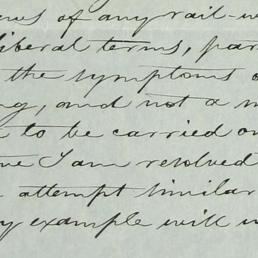 of any rail-
liberal terms, par
the symptoms
and not a
to be carried on
I am resolved
attempt similar
example will